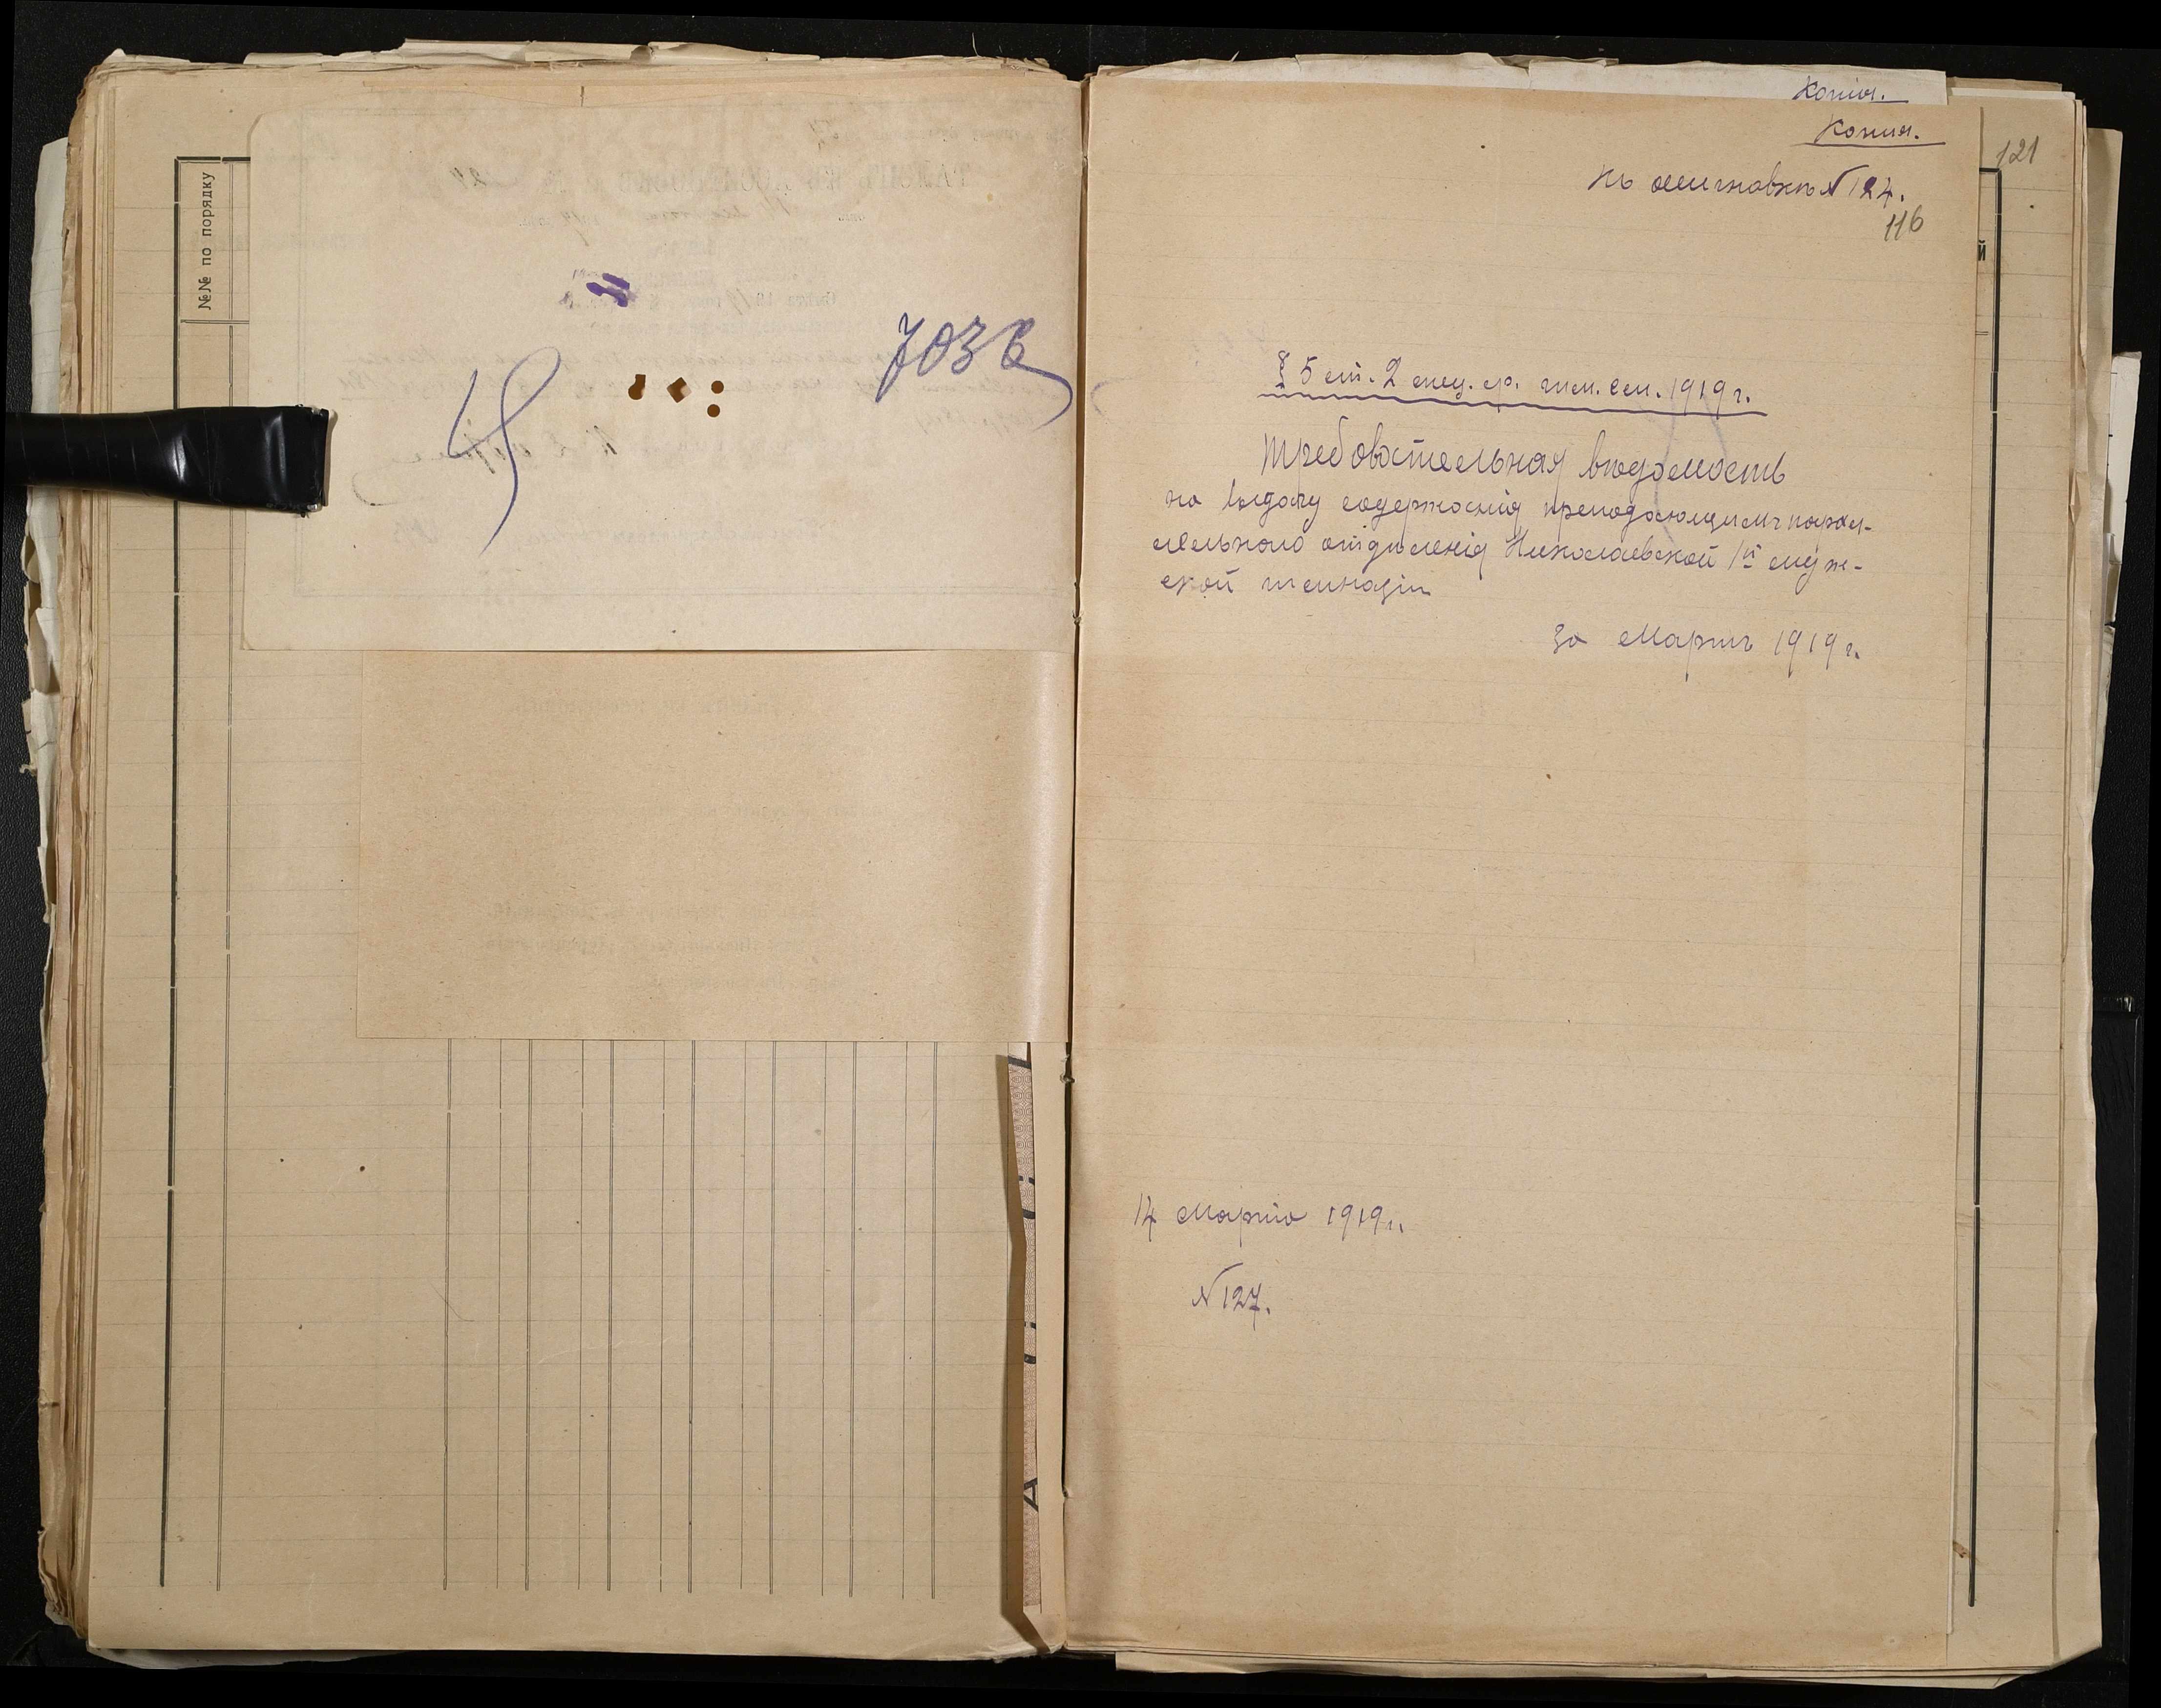 №№ по порядку
703 в
Копія.
Копия.
121
къ ассигновкѣ № 127.
116
й
§ 5 ст. 2 спец. ср. гим. см. 1919 г.
Требовательная вѣдомость
на выдачу содержанія преподающимъ парал-
лельнаго отдѣленія Николаевской 1й муж-
ской гимназіи
За Мартъ 1919 г.
14 Марта 1919 г.
№ 127.